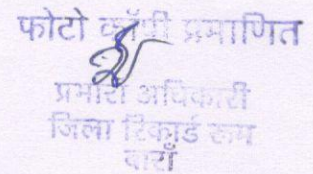 फोटो कॉपी प्रमाणित
प्रभारी अधिकारी
जिला रिकार्ड रूम
बाराँ